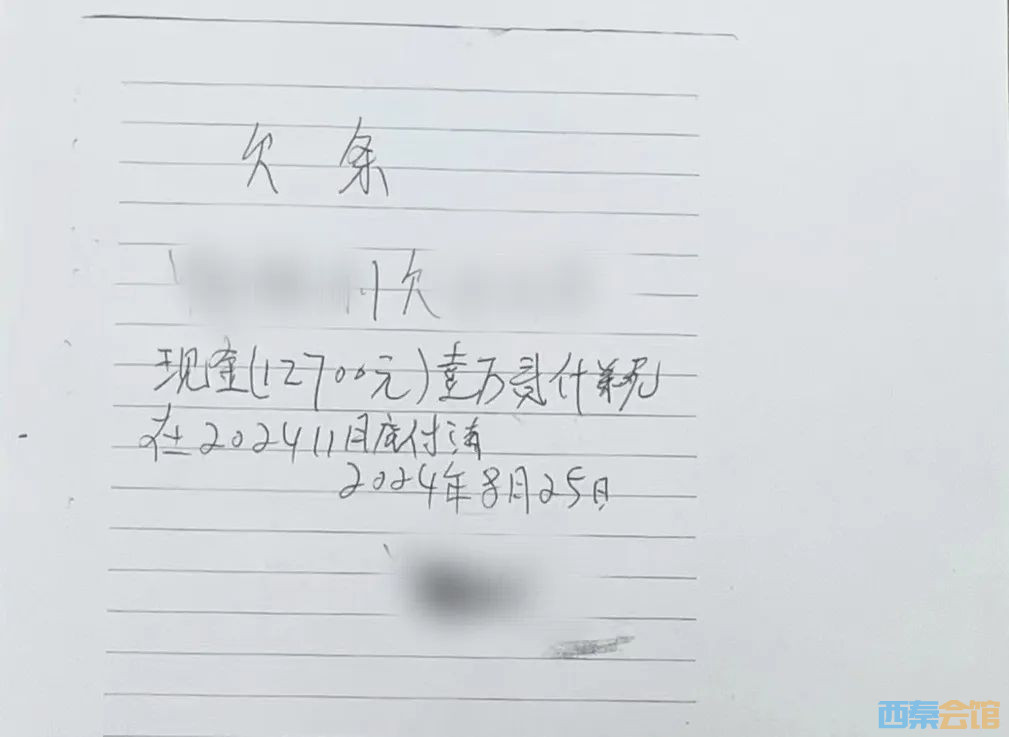 欠 条
欠
现金(12700元)壹万贰仟
在2024 11月底付清
2024年8月25日
西秦会馆